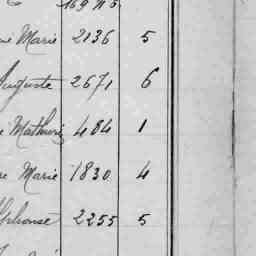 Marie 2136 5
Auguste 2671 6
Mathurin 484 1
Marie 1830 4
Alphonse 2255 5